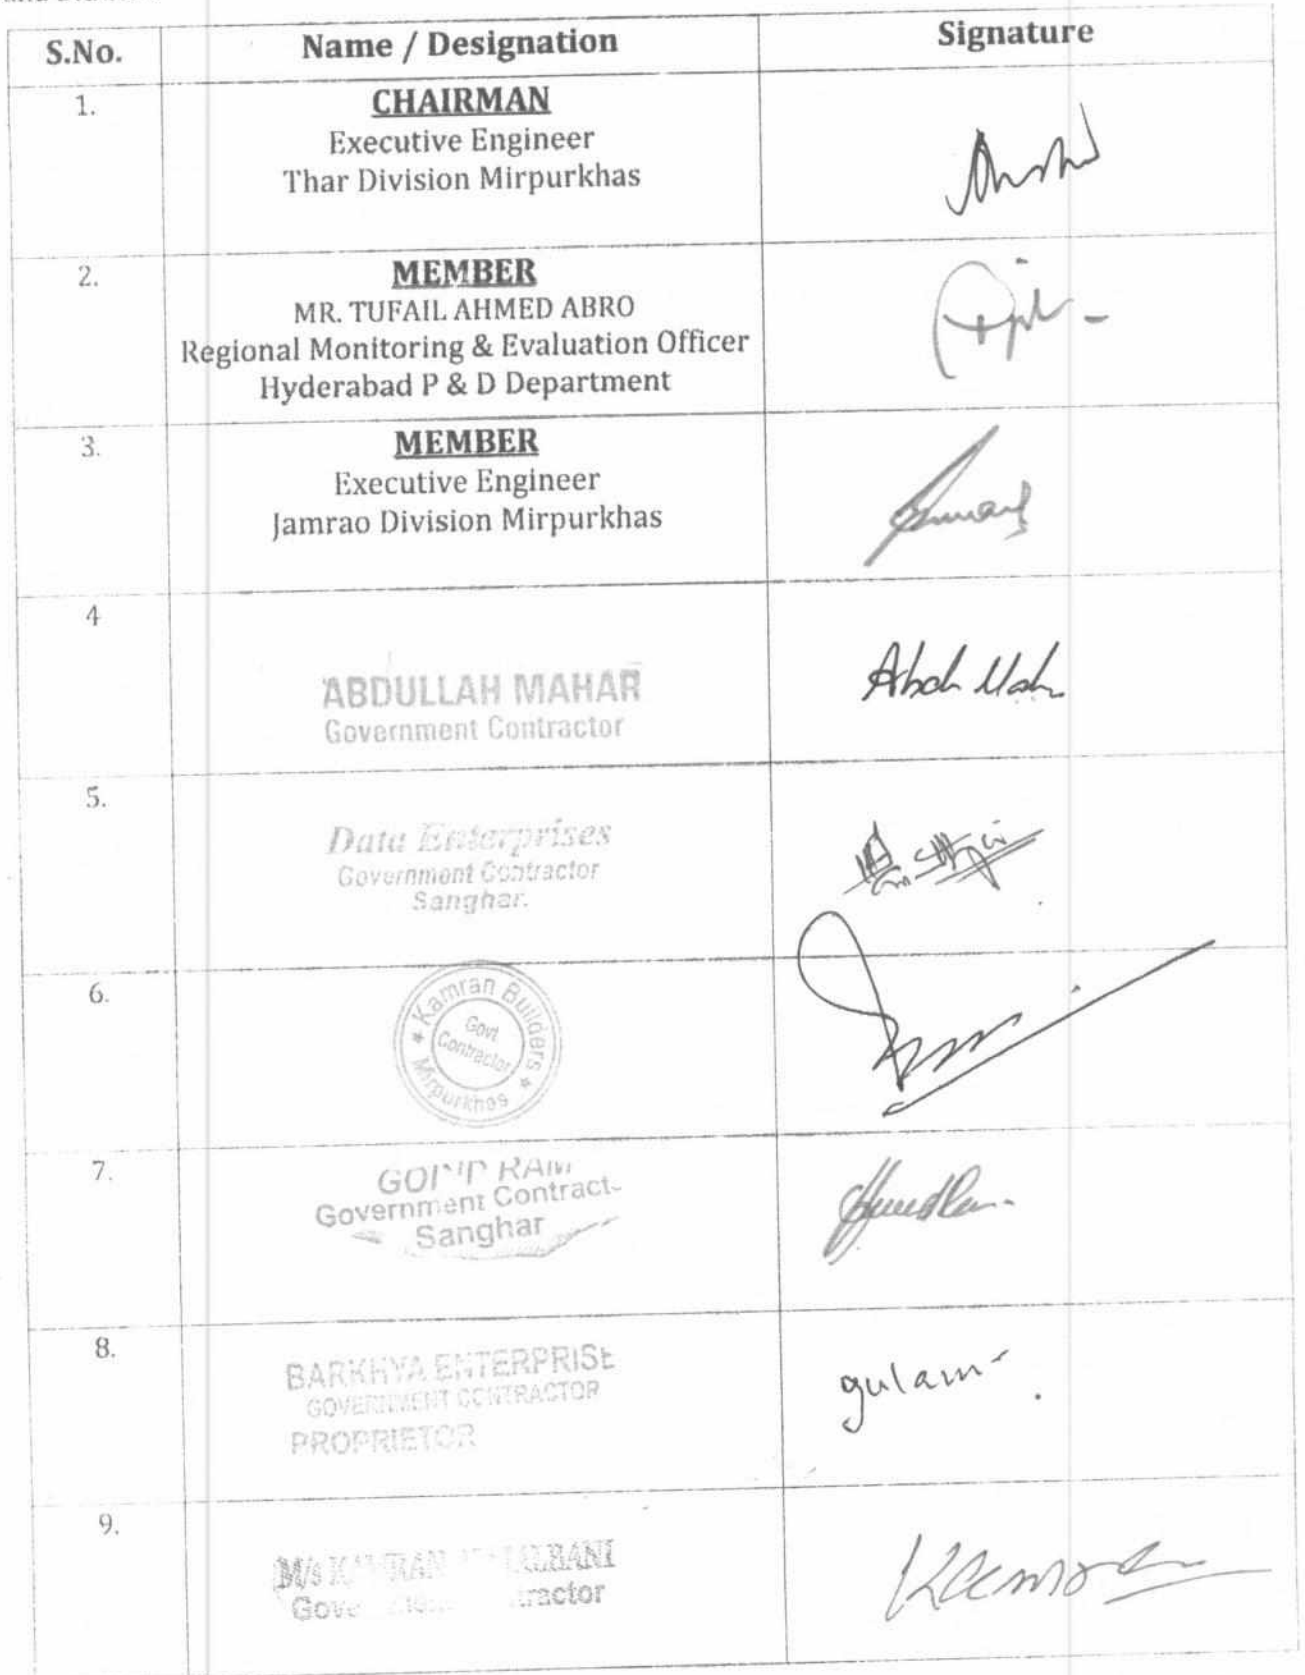 S.No. Name / Designation Signature
1. CHAIRMAN
Executive Engineer
Thar Division Mirpurkhas
2. MEMBER
MR. TUFAIL AHMED ABRO
Regional Monitoring & Evaluation Officer
Hyderabad P & D Department
3. MEMBER
Executive Engineer
Jamrao Division Mirpurkhas
4
ABDULLAH MAHAR
Government Contractor
5.
Data Enterprises
Government Contractor
Sanghar.
6.
Kamran Builders
Govt
Contractor
Mirpurkhas
7.
RAM
Government
Sanghar
8.
BARKHYA ENTERPRISE
GOVERNMENT CONTRACTOR
PROPRIETOR
gulam
9.
M/s
Kamran